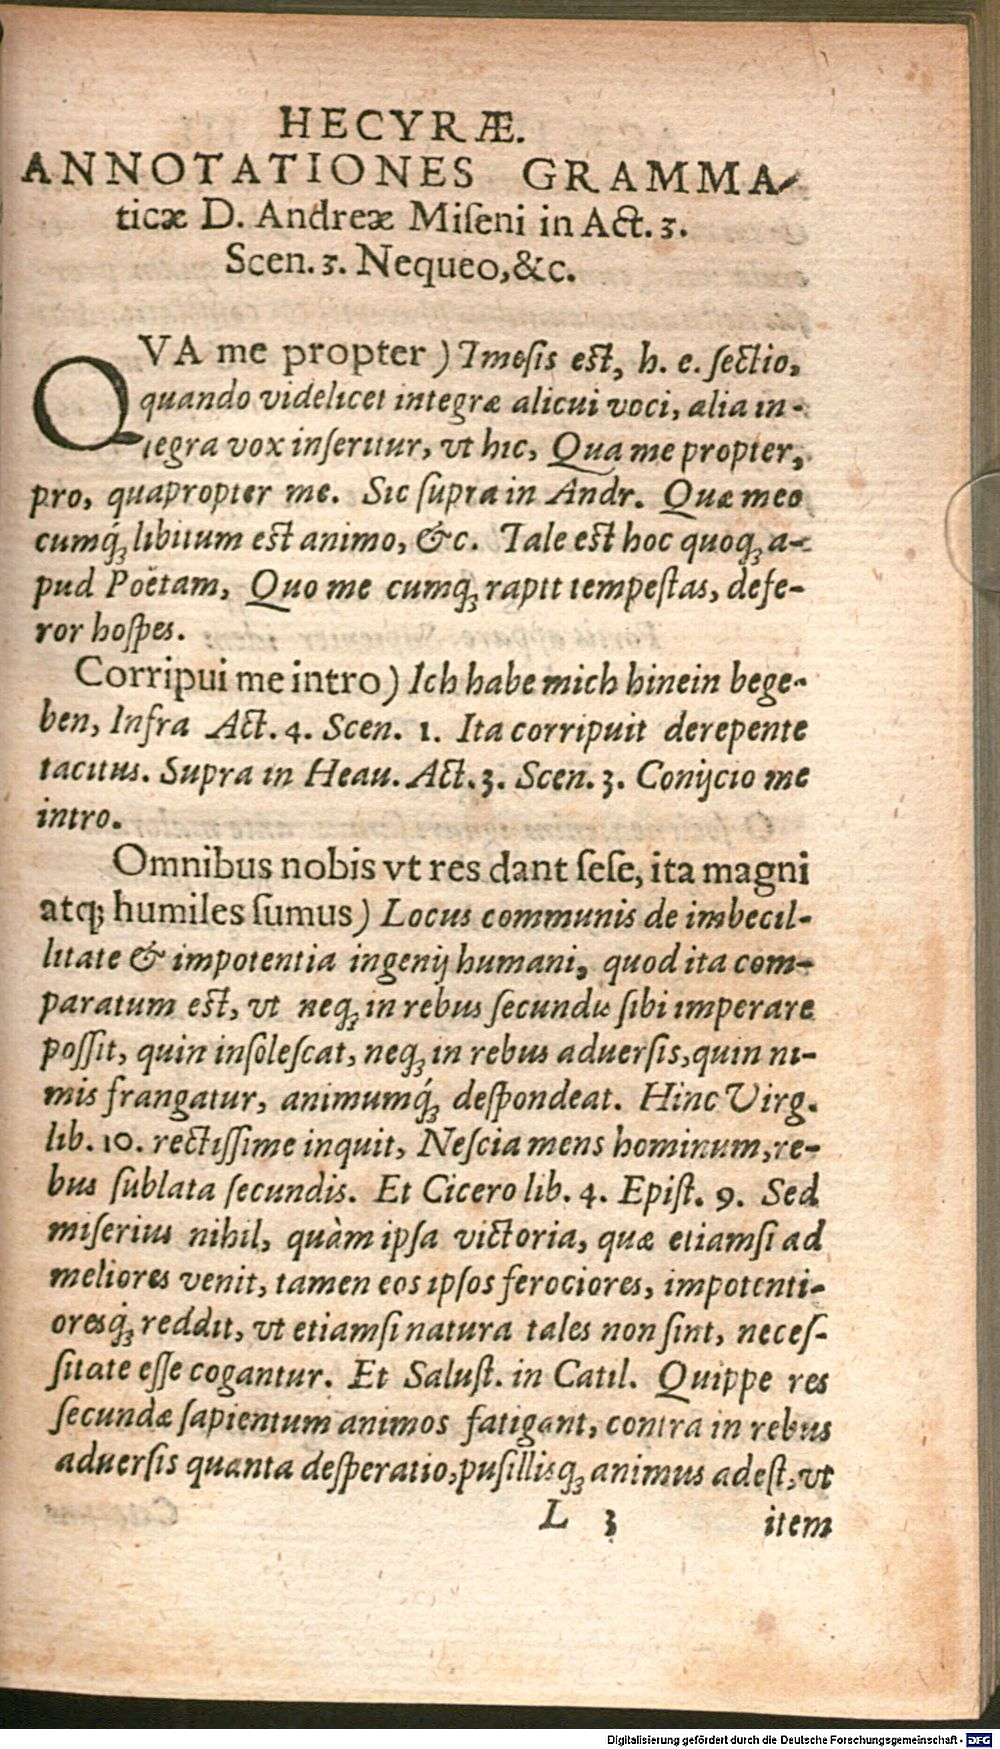 HECYRÆ.
ANNOTATIONES GRAMMA-
ticæ D. Andreæ Miſeni in Act. 3.
Scen. 3. Nequeo, &c.
QVA me propter) Tmeſis eſt, h. e. ſectio,
quando videlicet integræ alicui voci, alia in-
tegra vox inſeritur, vt hic, Qua me propter,
pro, quapropter me. Sic ſupra in Andr. Quæ meo
cumq́ꝫ libitum eſt animo, &c. Tale eſt hoc quoqꝫ a-
pud Poëtam, Quo me cumqꝫ rapit tempeſtas, defe-
ror hoſpes.
Corripui me intro) Ich habe mich hinein bege-
ben, Infra Act. 4. Scen. 1. Ita corripuit derepente
tacitus. Supra in Heau. Act. 3. Scen. 3. Conijcio me
intro.
Omnibus nobis vt res dant ſeſe, ita magni
atqꝫ humiles ſumus) Locus communis de imbecil-
litate & impotentia ingenij humani, quod ita com-
paratum eſt, vt neqꝫ in rebus ſecundis ſibi imperare
poſſit, quin inſoleſcat, neqꝫ in rebus aduerſis, quin ni-
mis frangatur, animumq́ꝫ deſpondeat. Hinc Virg.
lib. 10. rectiſſime inquit, Neſcia mens hominum, re-
bus ſublata ſecundis. Et Cicero lib. 4. Epiſt. 9. Sed
miſerius nihil, quàm ipſa victoria, quæ etiamſi ad
meliores venit, tamen eos ipſos ferociores, impotenti-
oresq́ꝫ reddit, vt etiamſi natura tales non ſint, neceſ-
ſitate eſſe cogantur. Et Saluſt. in Catil. Quippe res
ſecundæ ſapientum animos fatigant, contra in rebus
aduerſis quanta deſperatio, puſillisqꝫ animus adeſt, vt
L 3 item
Digitalisierung gefördert durch die Deutsche Forschungsgemeinschaft - DFG